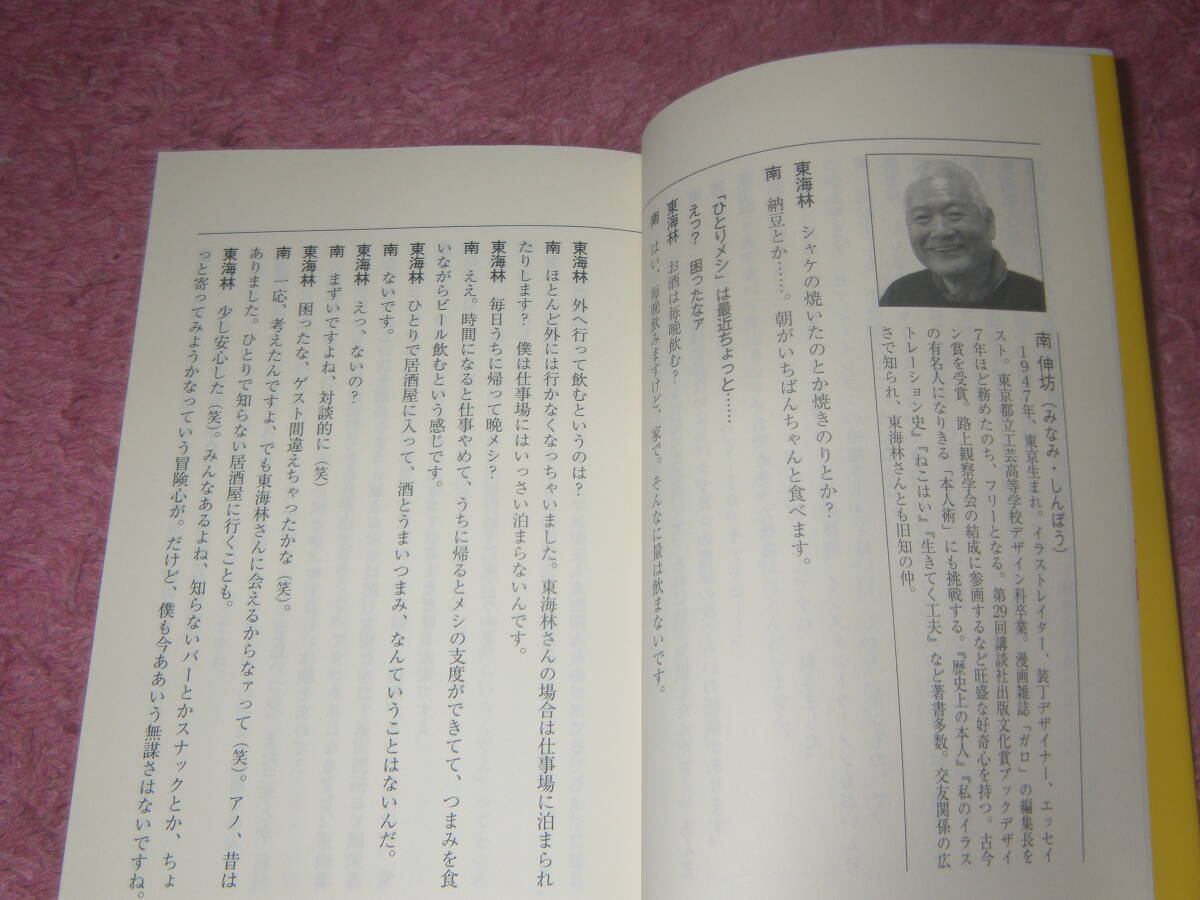 南 伸坊（みなみ・しんぼう）
1947年、東京生まれ。イラストレイター、装丁デザイナー、エッセイ
スト。東京都立工芸高等学校デザイン科卒業。漫画雑誌「ガロ」の編集長を
7年ほど務めたのち、フリーとなる。第29回講談社出版文化賞ブックデザイ
ン賞を受賞。路上観察学会の結成に参画するなど旺盛な好奇心を持つ。古今
の有名人になりきる「本人術」にも挑戦する。『歴史上の本人』『私のイラス
トレーション史』『ねこはい』『生きてく工夫』など著書多数。交友関係の広
さで知られ、東海林さんとも旧知の仲。
東海林　シャケの焼いたのとか焼きのりとか？
南　納豆とか……。朝がいちばんちゃんと食べます。
「ひとりメシ」は最近ちょっと……
えっ？　困ったなァ
東海林　お酒は毎晩飲む？
南　はい、毎晩飲みますけど、家で。そんなに量は飲まないです。
東海林　外へ行って飲むというのは？
南　ほとんど外には行かなくなっちゃいました。東海林さんの場合は仕事場に泊まられ
たりします？　僕は仕事場にはいっさい泊まらないんです。
東海林　毎日うちに帰って晩メシ？
南　ええ。時間になると仕事やめて、うちに帰るとメシの支度ができてて、つまみを食
いながらビール飲むという感じです。
東海林　ひとりで居酒屋に入って、酒とうまいつまみ、なんていうことはないんだ。
南　ないです。
東海林　えっ、ないの？
南　まずいですよね、対談的に（笑）
東海林　困ったな、ゲスト間違えちゃったかな（笑）。
南　一応、考えたんですよ、でも東海林さんに会えるからなァって（笑）。アノ、昔は
ありました。ひとりで知らない居酒屋に行くことも。
東海林　少し安心した（笑）。みんなあるよね、知らないバーとかスナックとか、ちょ
っと寄ってみようかなっていう冒険心が。だけど、僕も今ああいう無謀さはないですね。